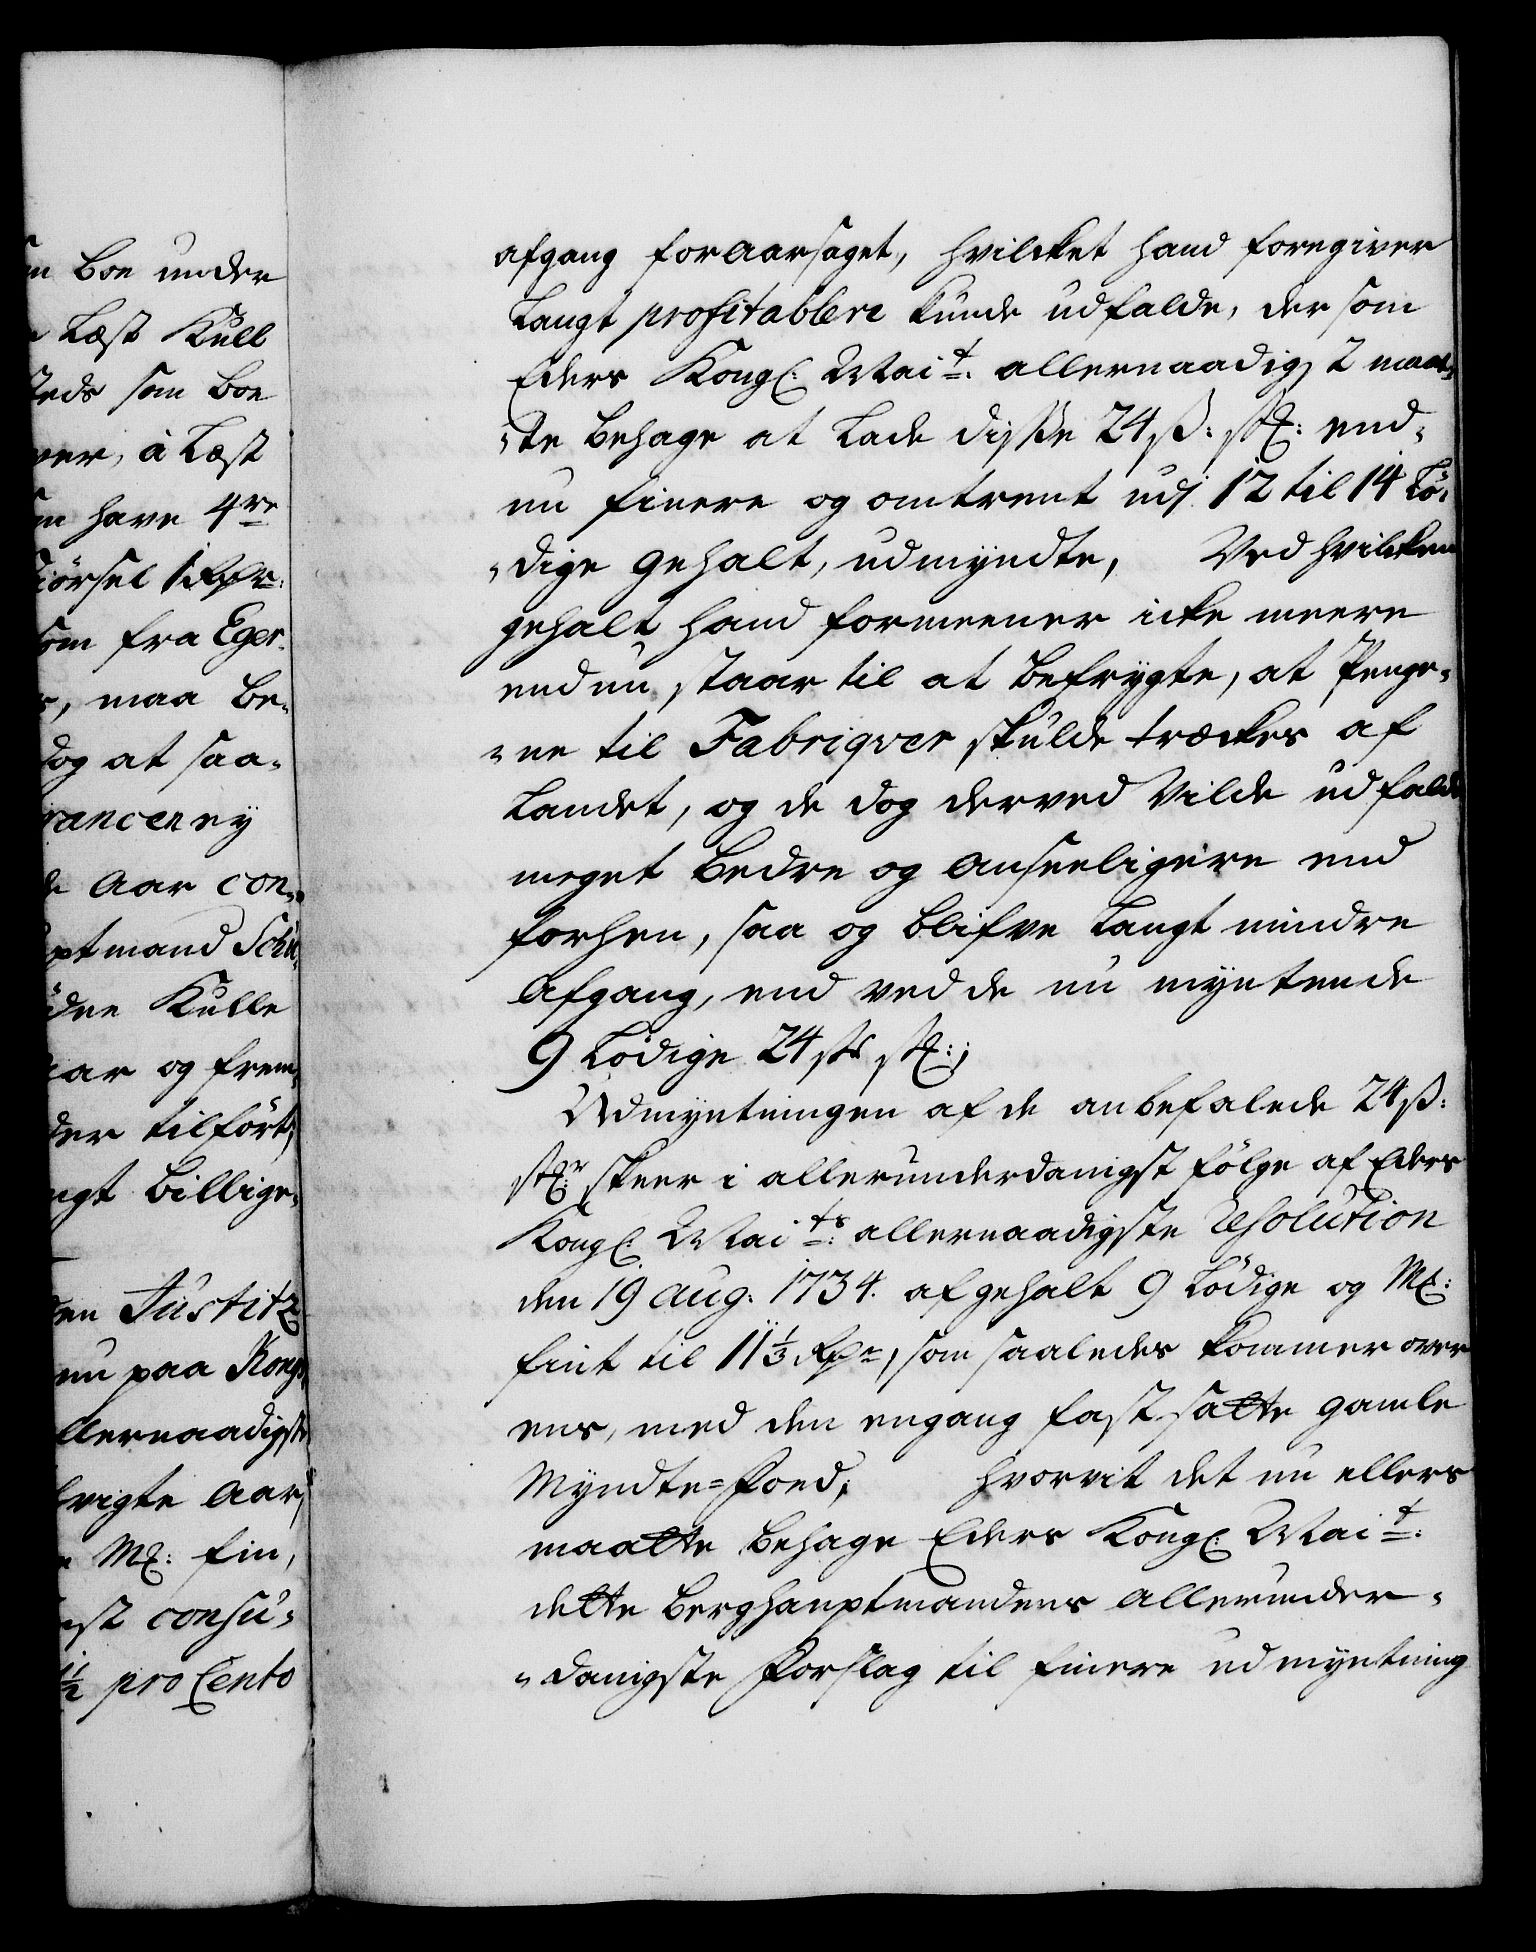 m boe under
Læst Kull
steds som boe
ver, à Læst
m have 4re
Kiörsel 1 Rdr:
som fra Eger.
maa be-
dog at saa-
rancen ey
Aar con-
uptmand Schu-
Kulle
aar og frem-
der tilfört,
ngt billige-
den Justitz
nu paa Kongs
llernaadigste
frigte Aar,
Mk: fin,
st consu-
1/2 pro Cento
afgang foraarsaget, hvilcket hand foregiver
Langt profitablere kunde udfalde, der som
Eders Kongl: Mait: allernaadigst maat-
-te behage at Lade disse 24 ß: st: end-
nu finere og omtrent udj 12 til 14 Lö-
-dige gehalt, udmyndte, Ved hvilcken
gehalt hand formeener icke meere
end nu staar til at befrygte, at Penge-
-ne til Fabriqver skulde træckes af
Landet, og de dog derved Vilde udfalde
meget bedre og anseeligere end
forhen, saa og blifve Langt mindre
Afgang, end ved de nu myntende
9 Lödige 24 ßs st:;
Udmyntningen af de anbefalede 24 ß:
str: skeer i allerunderdanigst fölge af Eders
Kongl: Maits: allernaadigste resolution
den 19 Aug: 1734. af gehalt 9 Lödige og Mk:
fint til 11 1/3 Rdr, som saaledes kommer over
ens, med den engang fast satte gamle
Myndte-Foed; hvorvit det nu ellers
maatte behage Eders Kongl: Mait:
dette berghauptmandens Allerunder-
-danigste Forslag til finere udmyntning